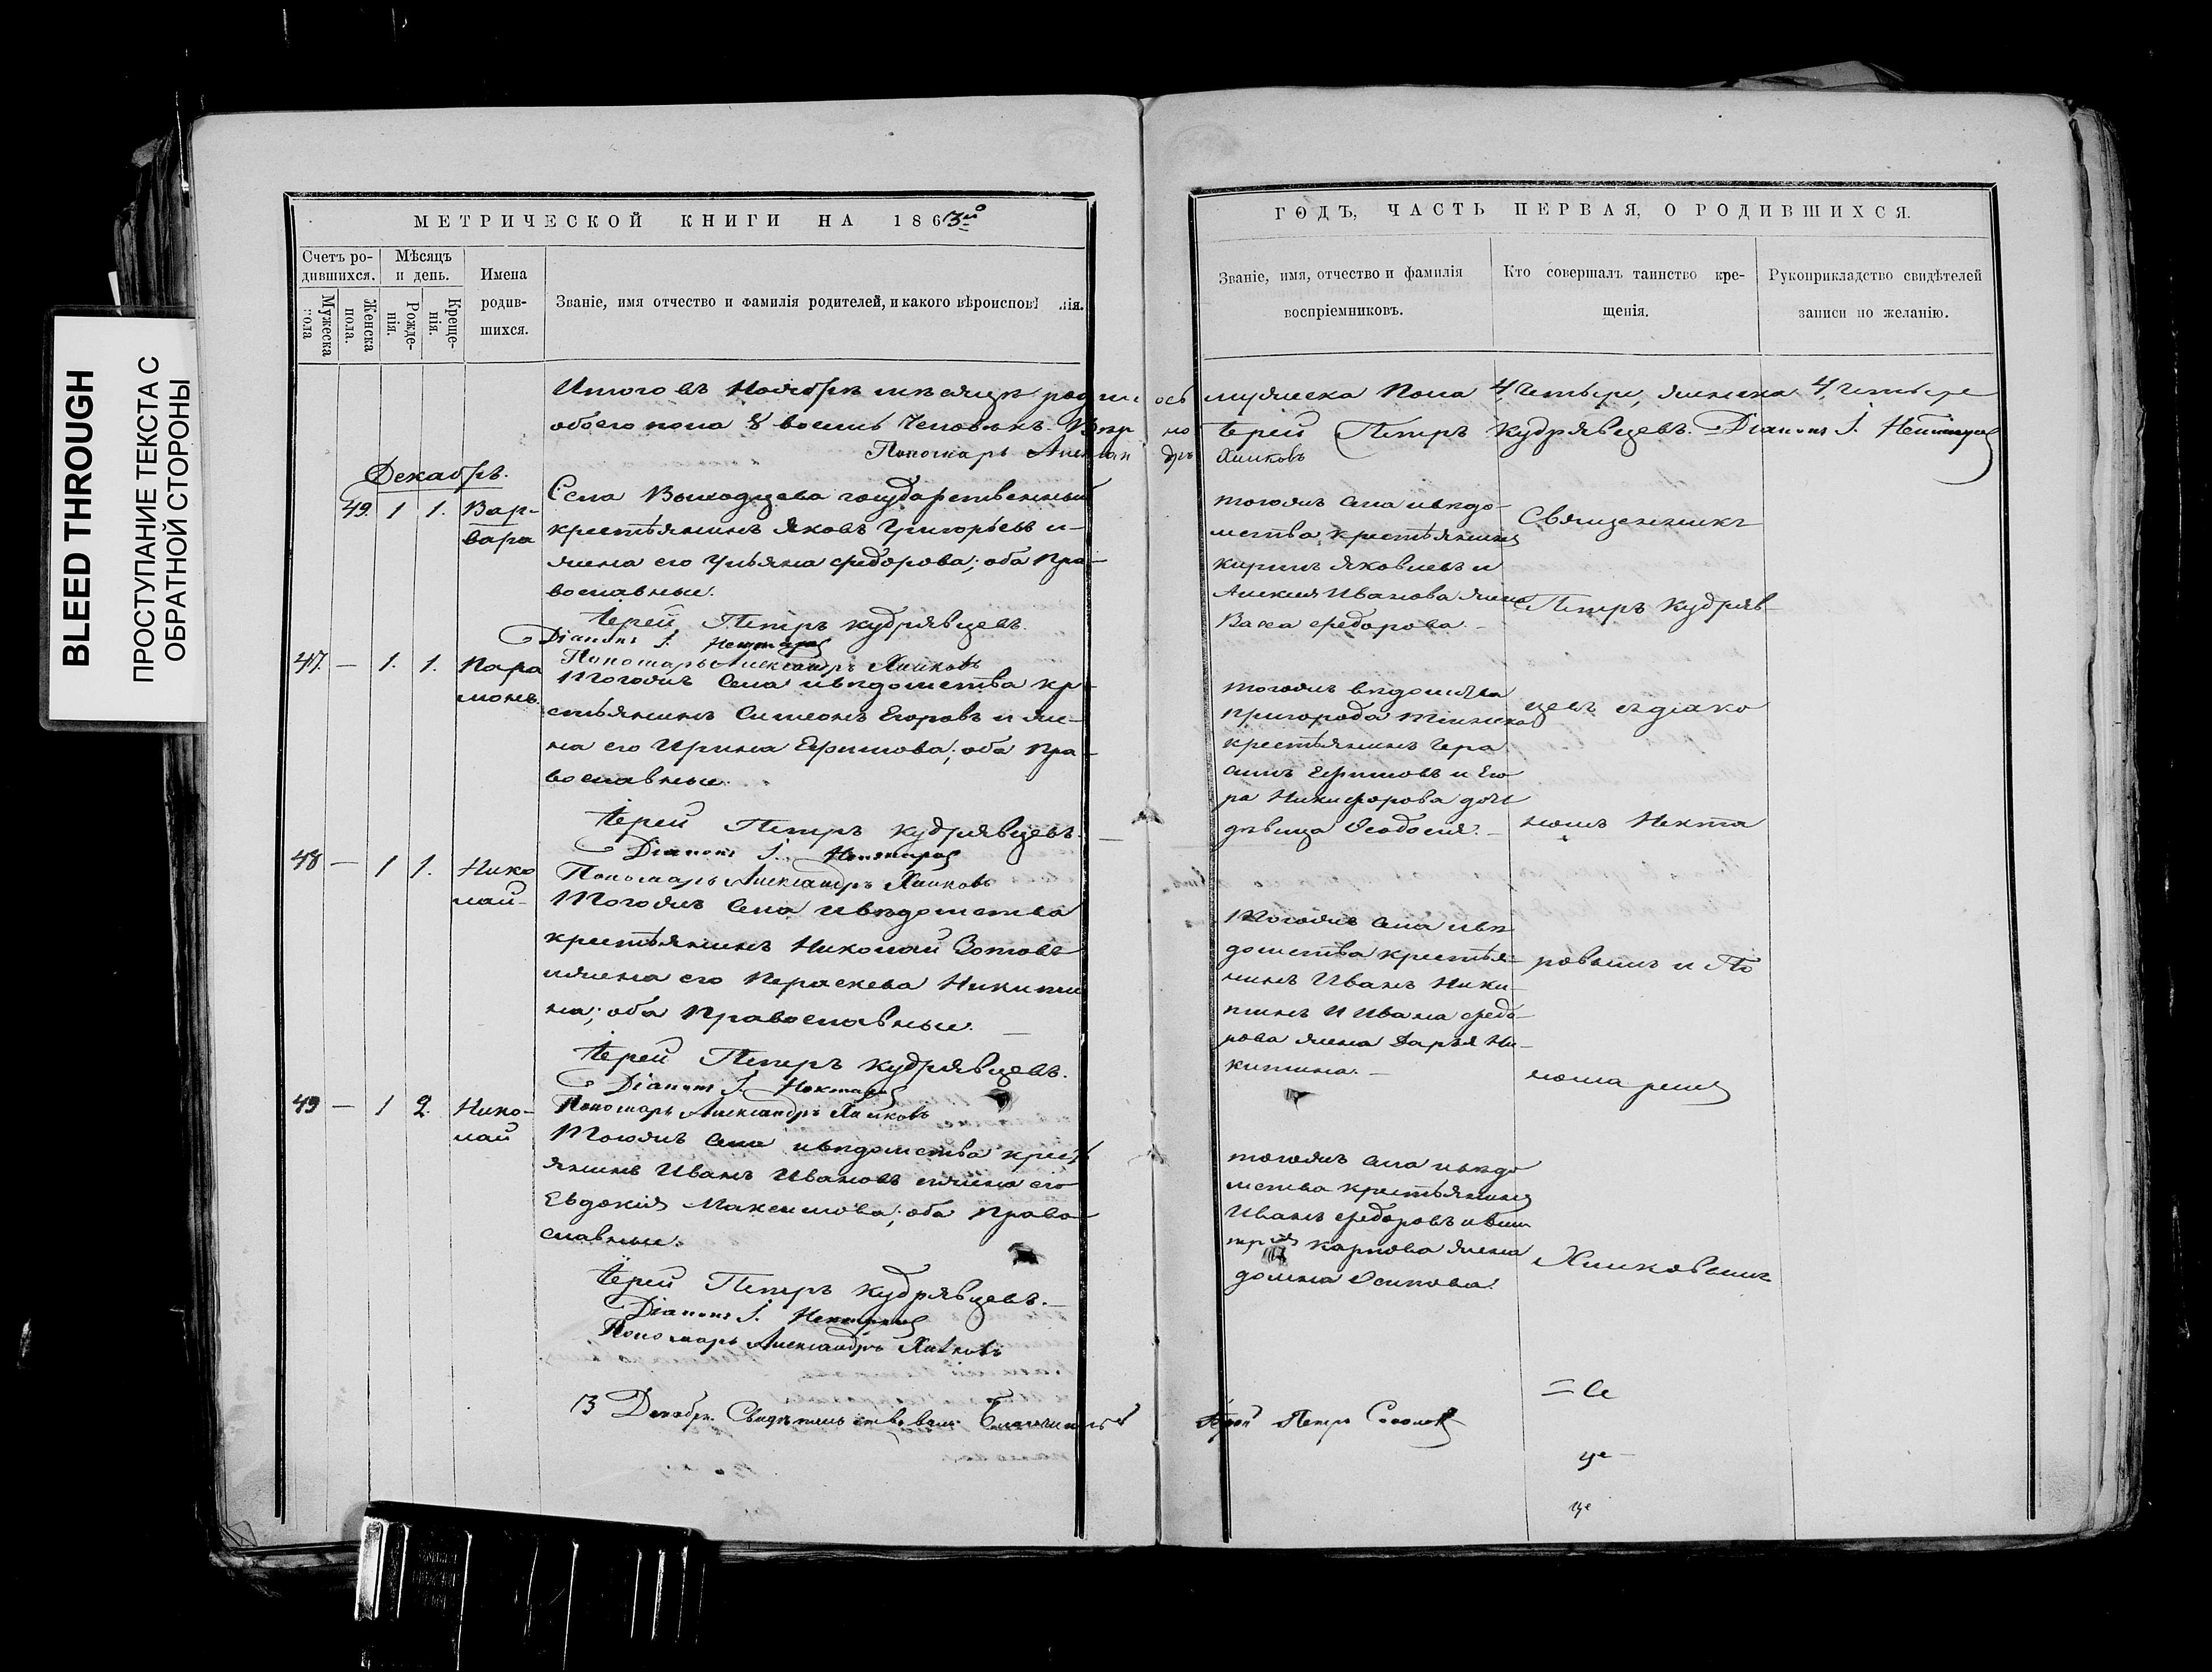 BLEED THROUGH
ПРОСТУПАНИЕ ТЕКСТА С
ОБРАТНОЙ СТОРОНЫ
МЕТРИЧЕСКОЙ КНИГИ НА 1863й
Счетъ ро-
дившихся.
Мужеска
пола
Женска
пола.
Мѣсяцъ
и день.
Рожде-
нія.
Креще-
нія.
Имена
родив-
шихся.
Званіе, имя отчество и фамилія родителей, и какого вѣроисповѣ нія.
Итого въ Ноябрѣ мѣсяцѣ
обоего пола 8 восемь Человѣкъ.
Пономарь
Декабрь.
49. 1 1. Вар-
вара
Села государственный
крестьянинъ Яковъ Григорьевъ и
жена его Ульяна Федорова; оба Пра-
вославные.
Іерей Петръ Кудрявцевъ.
Діаконъ І. Нектаровъ
Пономарь Александръ Хилковъ
47. — 1. 1. Пара
монъ.
Тогожъ Села и вѣдомства кре
стьянинъ Симеонъ Егоровъ и же-
на его Ирина Ефимова; оба Пра-
вославные.
Іерей Петръ Кудрявцевъ.
Діаконъ І. Нектаровъ
Пономарь Александръ Хилковъ
48 — 1 1. Нико
лай-
Тогожъ Села и вѣдомства
крестьянинъ Николай Зотовъ
и жена его Параскева Никити
на; оба Православные. —
Іерей Петръ Кудрявцевъ.
Діаконъ І. Нектаровъ
Пономарь Александръ Хилковъ
49 — 1 2. Нико-
лай
Тогожъ Села и вѣдомства кресть
янинъ Иванъ Ивановъ и жена его
Евдокия Максимова; оба Право-
славные.
Іерей Петръ Кудрявцевъ. —
Діаконъ І. Нектаровъ
Пономарь Александръ Хилковъ
13 Декабря Свидѣтельствовалъ Благочинный
ГОДЪ, ЧАСТЬ ПЕРВАЯ, О РОДИВШИХСЯ.
Званіе, имя, отчество и фамилія
воспріемниковъ.
Кто совершалъ таинство кре-
щенія.
Рукоприкладство свидѣтелей
записи по желанію.
ось мужеска Пола 4 Четыре, женска 4, четыре
но Іерей Петръ Кудрявцевъ. Діаконъ І. Нектаровъ
дръ Хилковъ
тогожъ села и вѣдо-
мства крестьянинъ
Кирилъ Яковлевъ и
Алексея Иванова жена
Васса Федорова. —
тогожъ вѣдомства
пригорода
крестьянинъ Гера
симъ Ефимовъ и Его
ра Никифорова дочь
дѣвица Феодосия. —
Тогожъ села и вѣ
домства крестья-
нинъ Иванъ Ники-
тинъ И Ивана Федо-
рова жена Дарья Ни-
китина. —
тогожъ села и вѣдо
мства крестьянинъ
Иванъ Федоровъ и
Карпова жена
домна Осипова.
Священникъ
Петръ Кудряв
цевъ съ діако
номъ Некта
ровымъ и По
номаремъ
Хилковымъ
Іерей Петръ